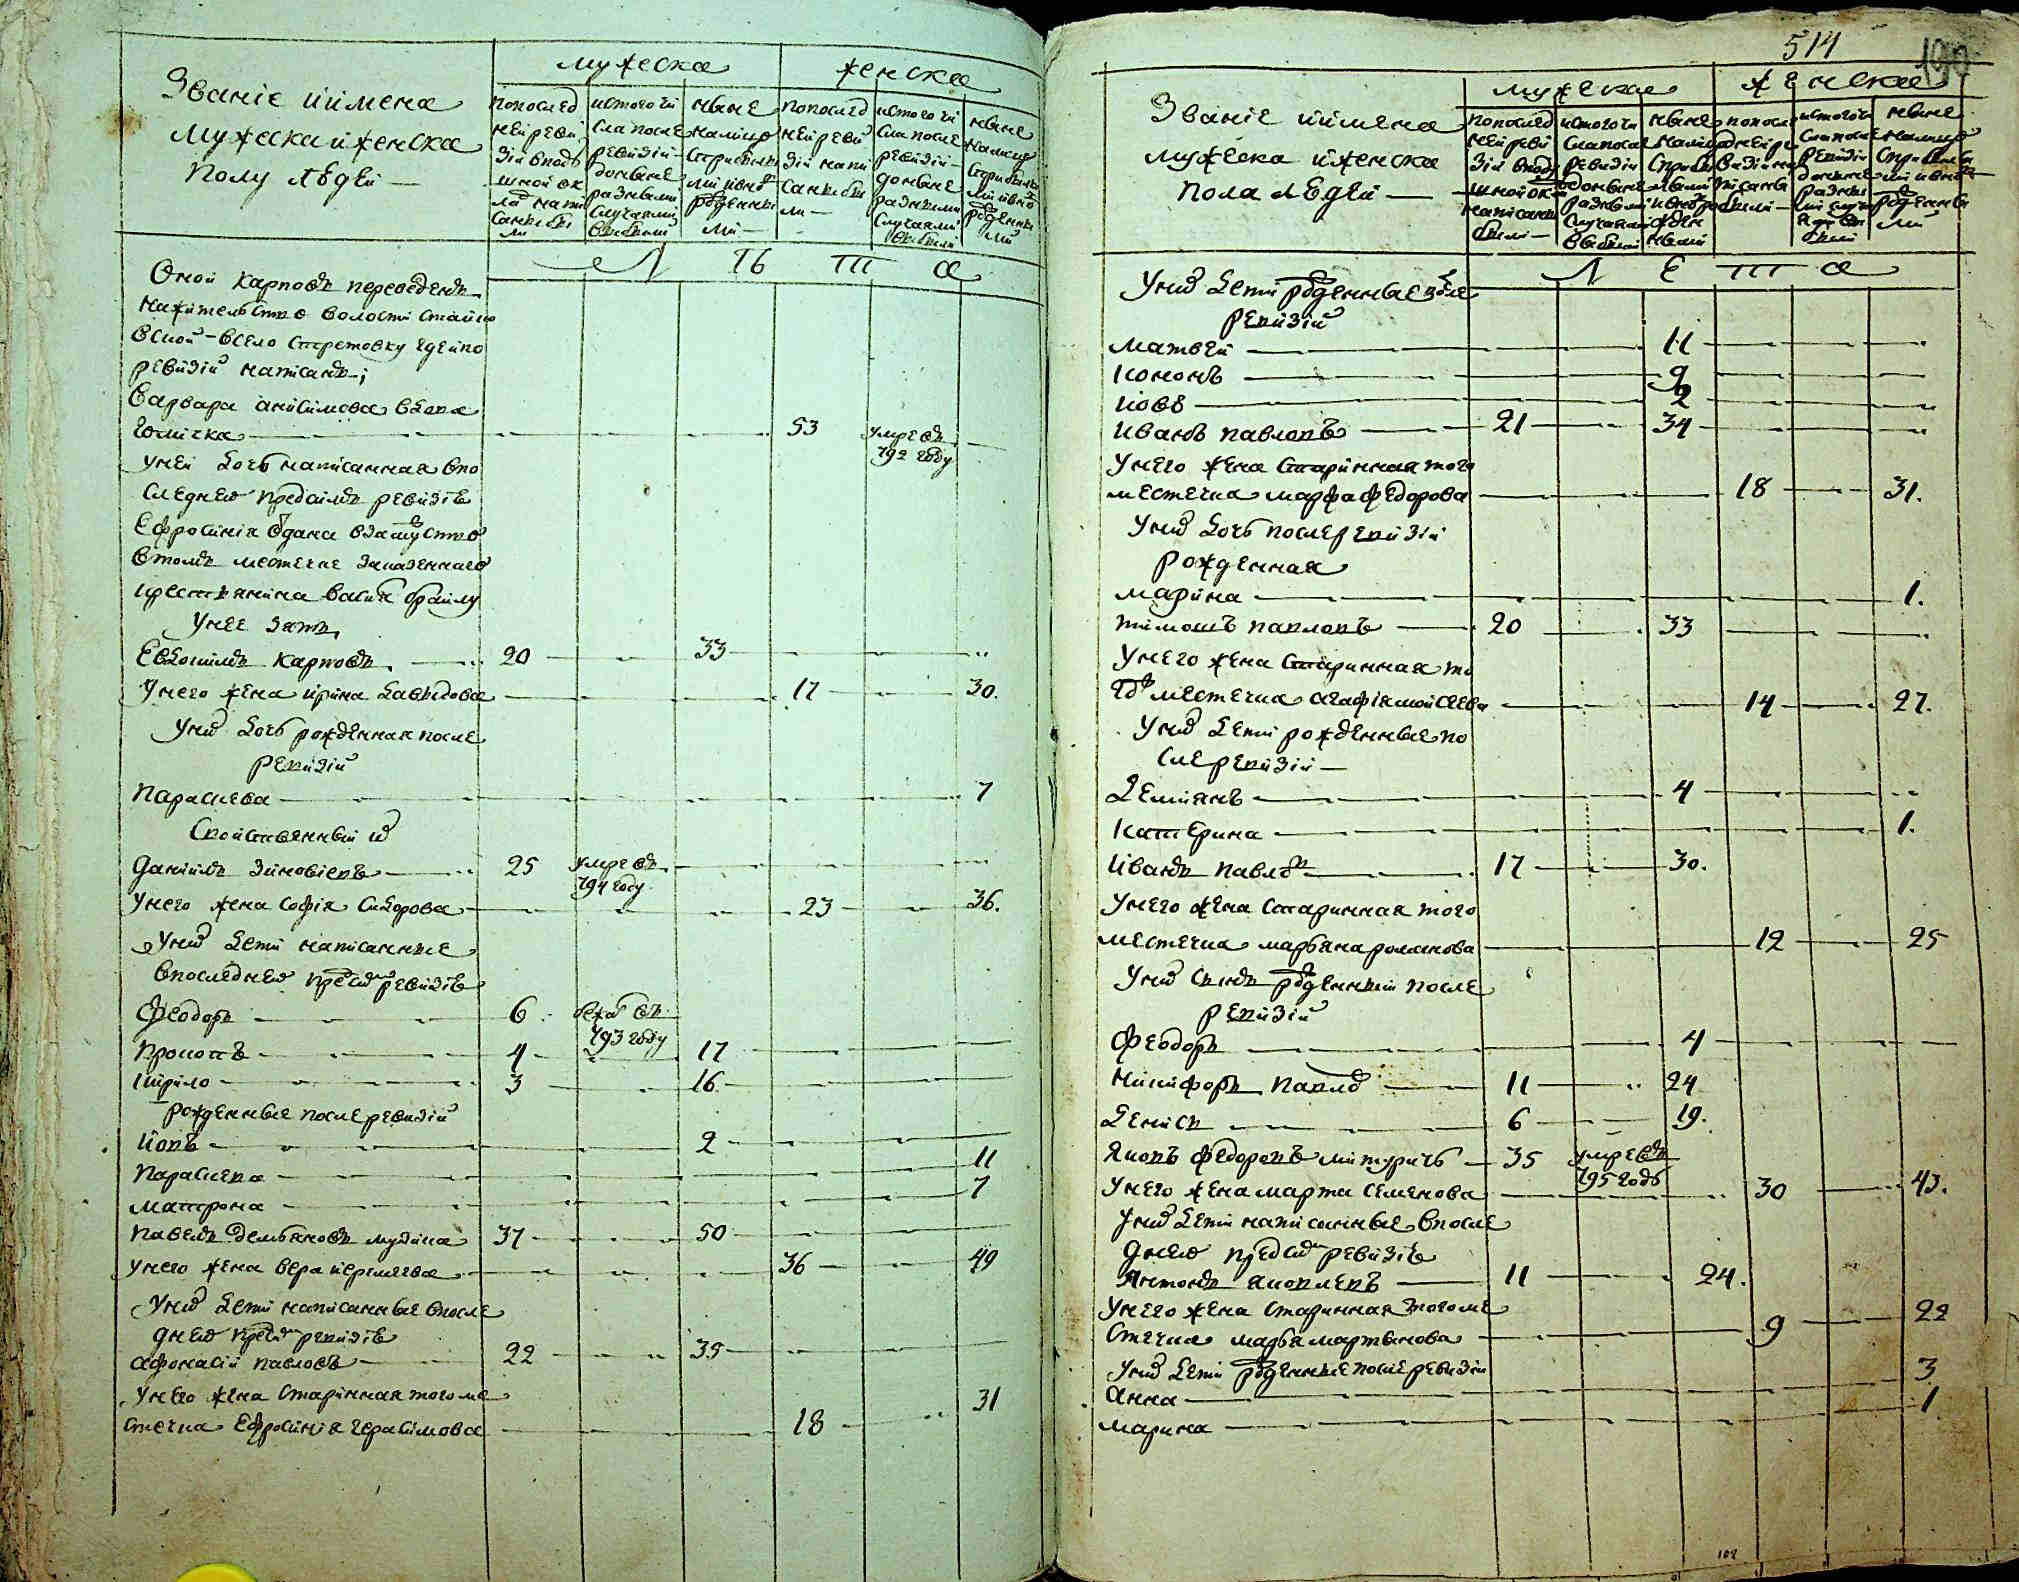 Званіе иимена
Мужеска иженска
Полу людей —
мужеска
женска
попослед
ней реви
зіи вподу
шной ок
лад напи
саны бы
ли
истого чи
сла после
ревизіи
доныне
разными
случаями
выбыли
ныне
налицо
сприбылы
ми ивно
рожденны
ми —
попослед
ней реви
зіи напи
саны бы
ли —
истого чи
сла после
ревизіи —
доныне
разными
случаями
выбыли
ныне
налицо
сприбылы
ми ивно
рожденны
ми
л ть та
Оной Карповъ переведенъ
нажителство волости
вской — всело Стретовку гдеипо
ревизіи написанъ;
Варвара анисимова вдова
53
умре въ
792 году
уней дочь написанная впо
следнею пред симъ ревизію
Ефросинія одана взамуство
втомъ местечке
крестянина
Унее зять
Евдокимъ Карповъ 20 33
Унего жена ирина давыдова 17 30.
Уних дочь рожденная после
ревизіи
Параскева 7
Свойственныи их
Даниилъ Зиновіевъ 25 умре въ
794 году
Унего жена Софія Сидорова 23 36.
Уних дети написанные
впоследнею пред сим ревизію
Феодоръ 6 бежа въ
793 году
Прокопъ 4 17
Кирило 3 16.
рожденные после ревизіи
Иовъ 2
Параскева 11
Матрона 7
Павелъ Демьяновъ 37 50
Унего жена вера 36 49
Уних дети написанные впосле
днею пред сим ревизію
афонасій павловъ 22 35
Унего жена старинная того ме
стечка Ефросинія герасимова 18 31
514
190
Званіе иимена
мужеска иженска
пола людей —
мужеска
женска
попослед
ней реви
зіи вподу
шной ок
написаны
были —
истого чи
сла после
ревизіи
доныне
разными
случаями
выбыли
ныне
налицо
сприбы
лыми
ивно
рожден
ными
попосле
дней ре
визіи на
писаны
были —
истого чи
сла после
ревизіи
доныне
разны
ми случа
ями вы
были
ныне
налицо
сприбылы
ми ивно
рожденны
ми
л е та
Уних дети рожденные после
ревизіи
Матвей 11
Кононъ 9
Иовъ 2
Иванъ павловъ 21 34
Унего жена старинная того
местечка марфа федорова 18 31.
Уних дочь после ревизіи
рожденная
Марина 1.
Тимошъ павловъ 20 33
Унего жена старинная то
го местечка агафія мойсеева 14 27.
Уних дети рожденные по
сле ревизіи —
Демянъ 4
Катерина 1.
Иванъ павлов 17 30.
Унего жена старинная того
местечка марьяна романова 12 25
Уних сынъ рожденный после
ревизіи
Феодоръ 4
Никифоръ павлов 11 24
Денисъ 6 19.
Яковъ федоровъ 35 умре въ
795 годъ
Унего жена марта семенова 30 43.
Уних дети написанные впосле
днею пред сим ревизію
Антонъ яковлевъ 11 24.
Унего жена старинная того ме
стечка марья мартынова 9 22
Уних дети рожденные после ревизіи
Анна 3
Марина 1
102